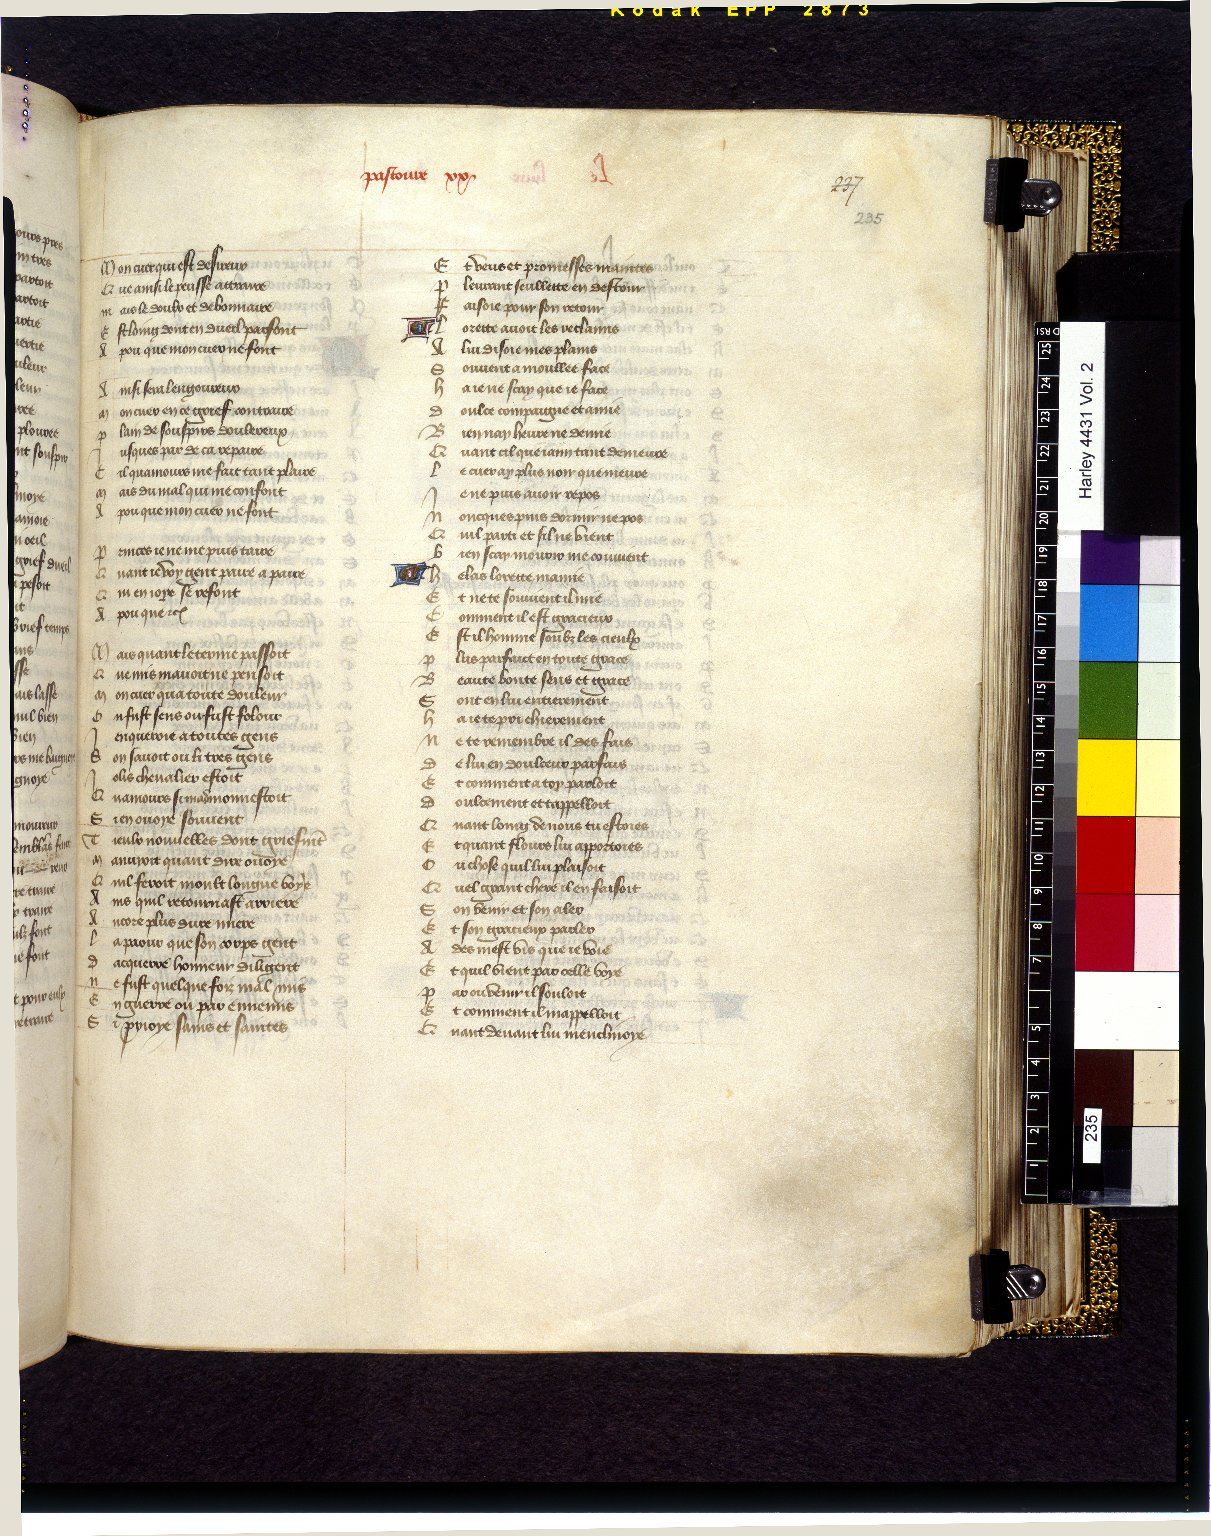 Kodak EPP 2873
pastoure xx
Le
237
235
Mon cuer qui est desireux
Que ainsi le peusse attraire
mais le doulx et debonnaire
Est loing dont en dueil parfont
A pou que mon cuer ne font
Ainsi sera lengoureux
mon cuer en ce grief contraire
plain de souspirs doulereux
Jusques par de ca repaire
Cil quamours me fait tant plaire
mais du mal qui me confont
A pou que mon cuer ne font
princes ie ne me puis taire
Quant ie voy gent paire a paire
Qui en ioye se refont
A pou que etc
Mais quant le terme passoit
Que mis mauoit ne pensoit
mon cuer qua toute douleur
On fust sens ou fust folour
Jenqueroie a toutes gens
Son sauoit ou li tres gens
Jolis chevalier estoit
Qu amours si mamonnestoit
Sien ouoye souuent
Tieulx nouuelles dont griefment
manuyoit quant dire ouoye
Quil feroit moult longue voye
Ains quil retournast arriere
Ancore plus dure miere
la paour que son corps gent
dacquerre honneur diligent
ne fust quelque foiz mal mis
En guerre ou par ennemis
Si prioye sains et saintes
Et veus et promesses maintes
pleurant seullette en destour
Faisoie pour son retour
Lorete auoit les reclaims
A lui disoie mes plains
Souuent a moullee face
ha ie ne scay que ie face
doulce compaigne et amie
Bien nay heure ne demie
Quant cil que iaim tant demeure
le cuer ay plus noir que meure
Je ne puis auoir repos
Noncques puis dormir ne pos
Quil parti et sil ne vient
bien scay mourir me conuient
helas lorete mamie
Et ne te souuient il mie
Comment il est gracieux
Est il homme soubz les cieulx
plus parfait en toute grace
Beaute bonte sens et grace
Sont en lui entierement
ha ie te pri chierement
Ne te remembre il des fais
de lui en doulceur parfais
Et comment a toy parloit
doulcement et tappelloit
Quant loing de nous tu estoies
Et quant flours lui apportoies
Ou chose quil lui plaisoit
Quel grant chere il en faisoit
Son venir et son aler
Et son gracieux parler
Ades mest vis que ie voie
Et quil vient par celle voye
par ou venir il souloit
Et comment il mappelloit
Quant deuant lui menclinoye
Harley 4431 Vol. 2
235